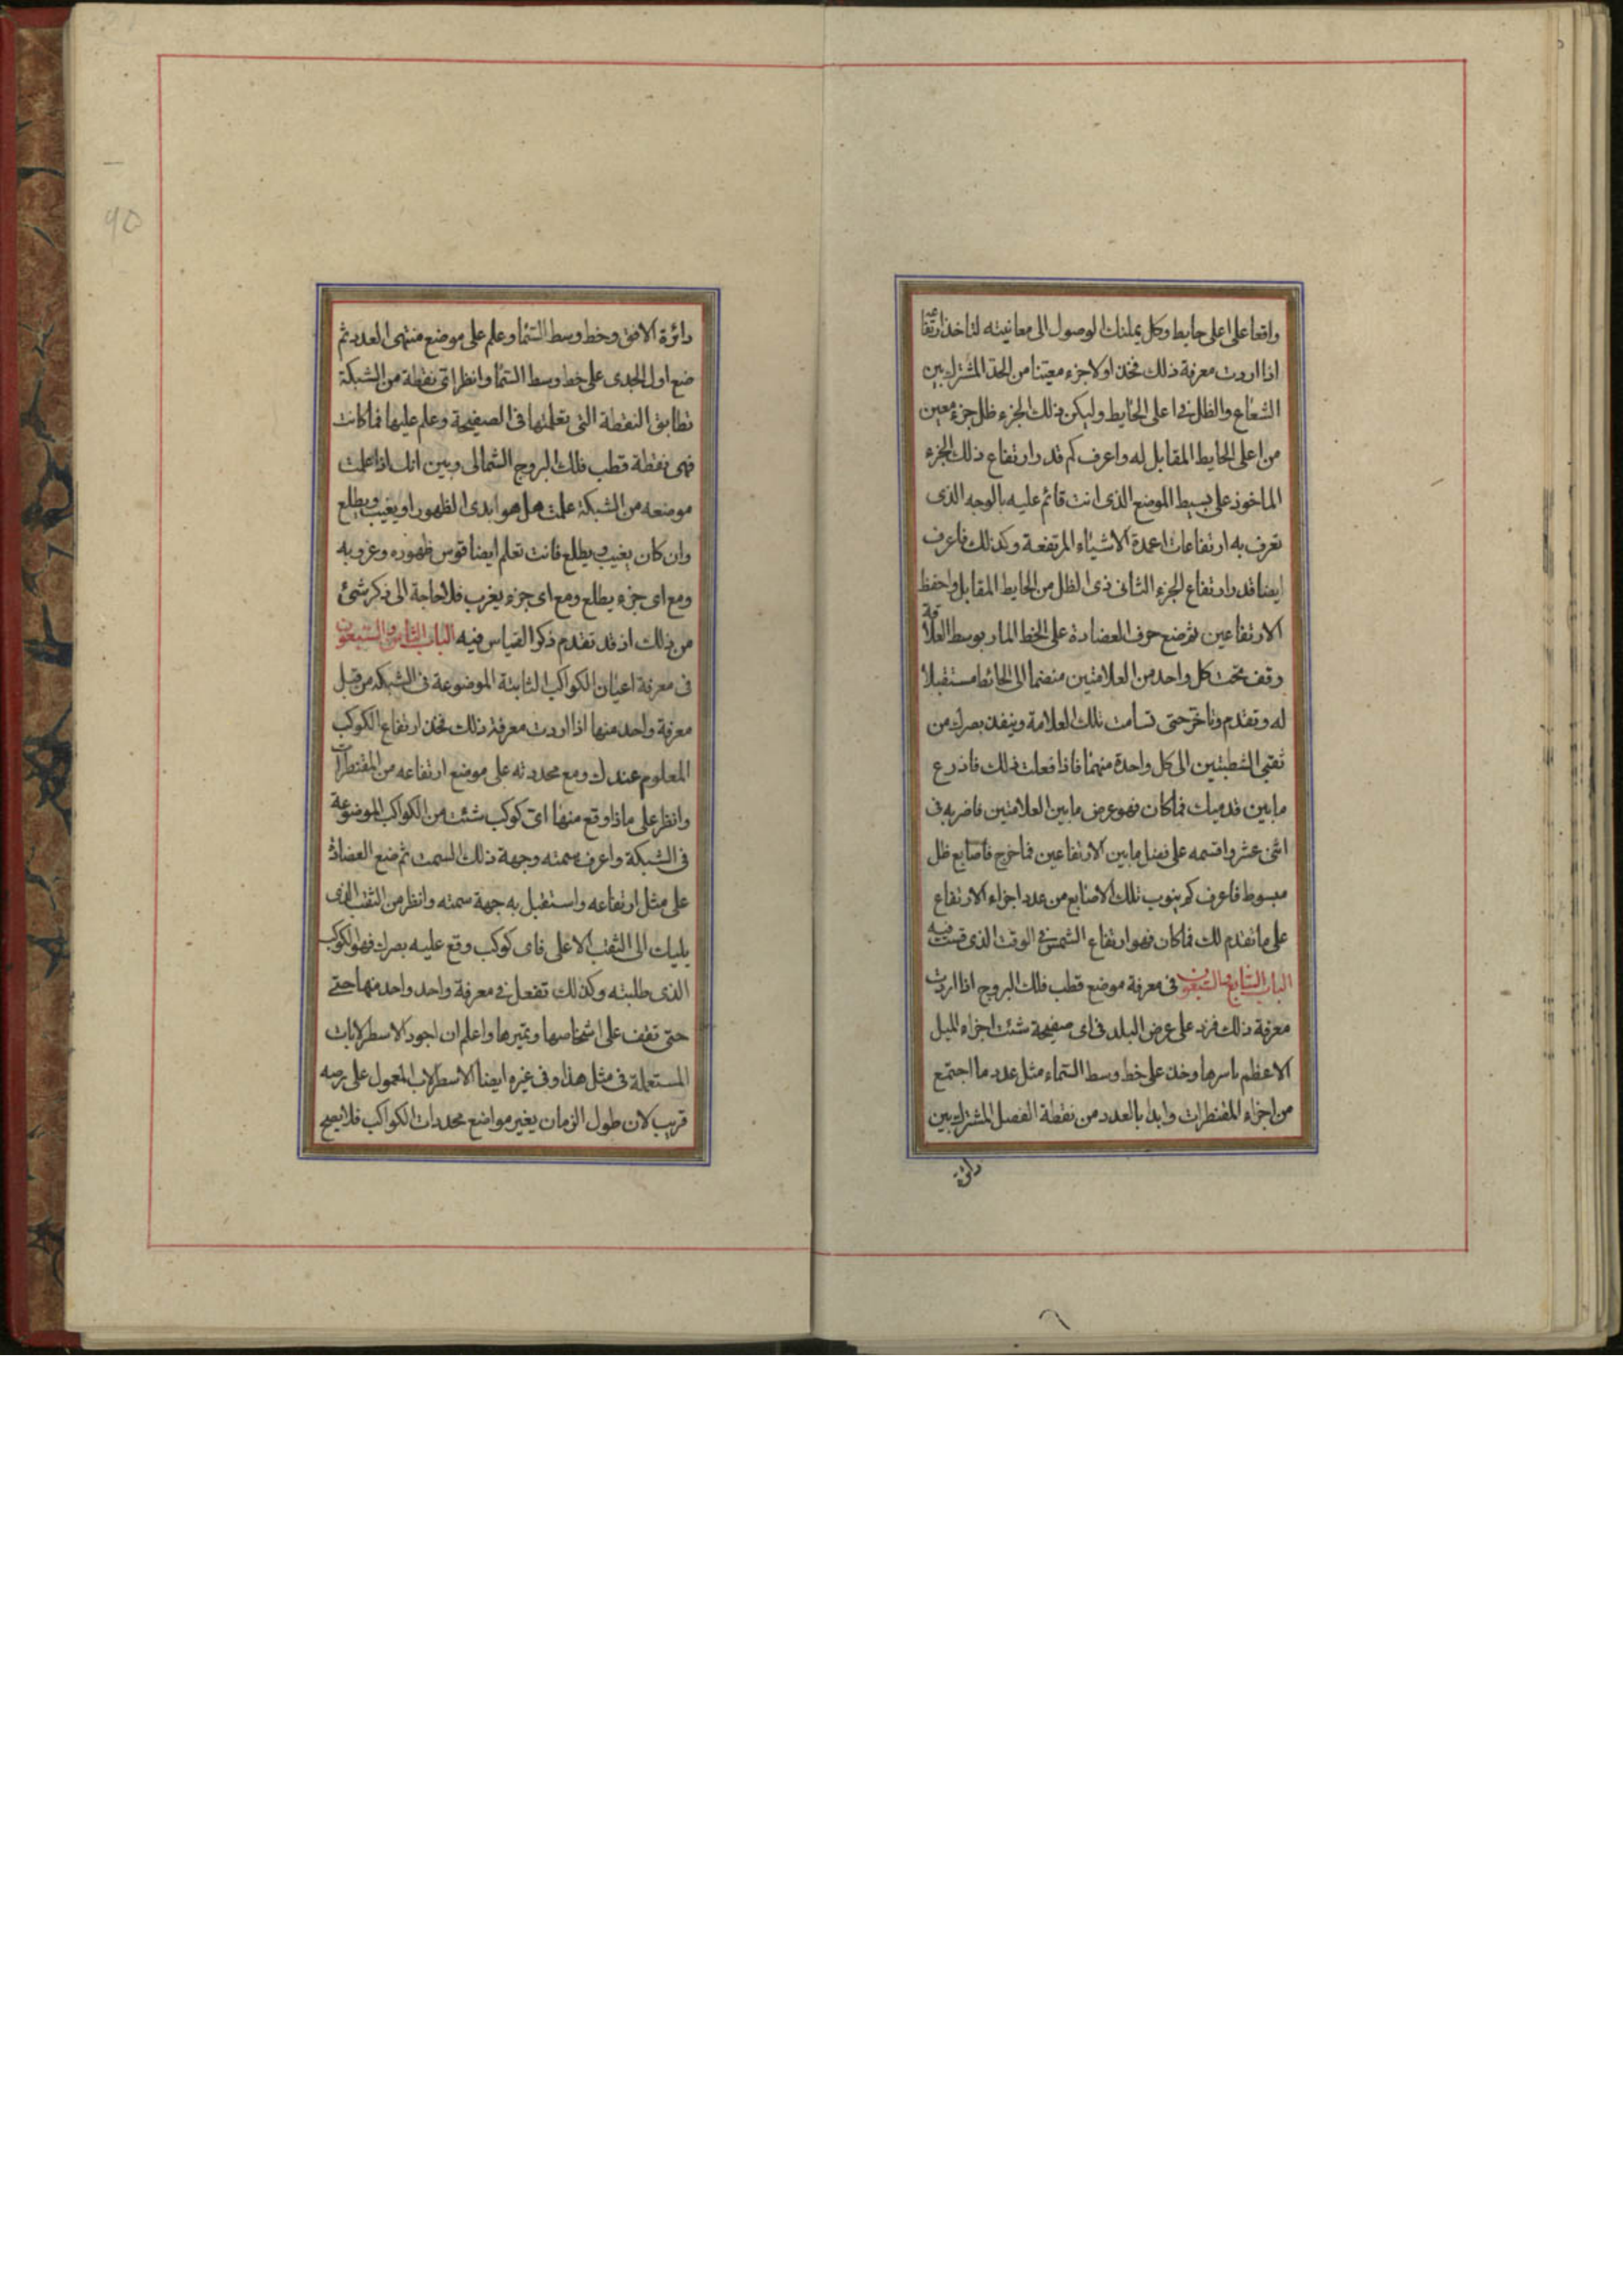 واقعا على اعلى حايط وكل يملنك الوصول الى معاينته لتاخذ ارتفاعه
اذا اردت معرفة ذلك فخذ اولا جزء معينا من الحد المشترك بين
الشعاع والظل فى اعلى الحايط وليكن ذلك الجزء ظل جزء معين
من اعلى الحايط المقابل له واعرف كم قدر ارتفاع ذلك الجزء
الماخوذ على بسيط الموضع الذى انت قائم عليه بالوجه الذى
تعرف به ارتفاعات اعمدة الاشياء المرتفعة وكذلك فاعرف
ايضا قدر ارتفاع الجزء الثانى ذى الظل من الحايط المقابل واحفظ
الارتفاعين ثم ضع حرف العضادة على الخط المار بوسط العلاقة
وقف تحت كل واحد من العلامتين منضما الى الحائط مستقبلا
له وتقدم وتاخر حتى تسامت تلك العلامة وينفذ بصرك من
ثقبى الشطبتين الى كل واحدة منهما فاذا فعلت ذلك فاذرع
ما بين قدميك فما كان فهو عرض ما بين العلامتين فاضربه فى
اثنى عشر واقسمه على فضل ما بين الارتفاعين فما خرج فاصابع ظل
مبسوط فاعرف كم ينوب تلك الاصابع من عدد اجزاء الارتفاع
على ما تقدم لك فما كان فهو ارتفاع الشمس فى الوقت الذى قست فيه
الباب السابع والسبعون فى معرفة موضع قطب فلك البروج اذا اردت
معرفة ذلك فزد على عرض البلد فى اى صفيحة شئت اجزاء الميل
الاعظم باسرها وخذ على خط وسط السماء مثل عدد ما اجتمع
من اجزاء المقنطرات وابدا بالعدد من نقطة الفصل المشترك بين
دائرة
دائرة الافق وخط وسط السماء وعلم على موضع منتهى العدد ثم
ضع اول الجدى على خط وسط السماء وانظر اى نقطة من الشبكة
تطابق النقطة التى تعلمتها فى الصفيحة وعلم عليها فما كانت
فهى نقطة قطب فلك البروج الشمالى وبين انك اذا علمت
موضعه من الشبكة علمت هل هو ابدى الظهور او يغيب ويطلع
وان كان يغيب ويطلع فانت تعلم ايضا قوس ظهوره وغروبه
ومع اى جزء يطلع ومع اى جزء يغرب فلا حاجة الى ذكر شئ
من ذلك اذ قد تقدم ذكر القياس فيه الباب الثامن والسبعون
فى معرفة اعيان الكواكب الثابتة الموضوعة فى الشبكه من قبل
معرفة واحد منها اذا اردت معرفة ذلك فخذ ارتفاع الكوكب
المعلوم عندك وضع محددته على موضع ارتفاعه من المقنطرات
وانظر على ماذا وقع منها اى كوكب شئت من الكواكب الموضوعة
فى الشبكة واعرف سمته وجهة ذلك السمت ثم ضع العضادة
على مثل ارتفاعه واستقبل به جهة سمته وانظر من الثقب الذى
يليك الى الثقب الاعلى فاى كوكب وقع عليه بصرك فهو الكوكب
الذى طلبته وكذلك تفعل فى معرفة واحد واحد منها حتى
حتى تقف على اشخاصها وتميزها واعلم ان اجود الاسطرلابات
المستعملة فى مثل هذا وفى غيره ايضا الاسطرلاب المعمول على رصد
قريب لان طول الزمان يغير مواضع محددات الكواكب فلا يصح